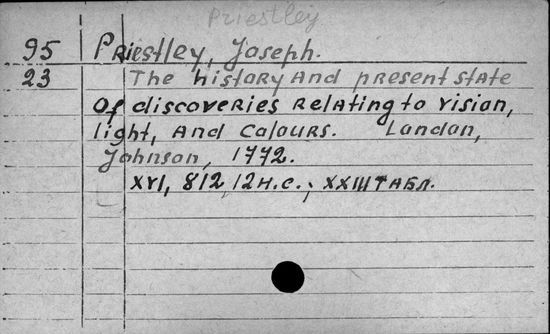 Priestley
95 Priestley, Joseph.
23 The history and present state
of discoveries relating to vision,
light, and colours. London,
Johnson, 1772.
XVI, 812, 12 н.с.; XXIII табл.